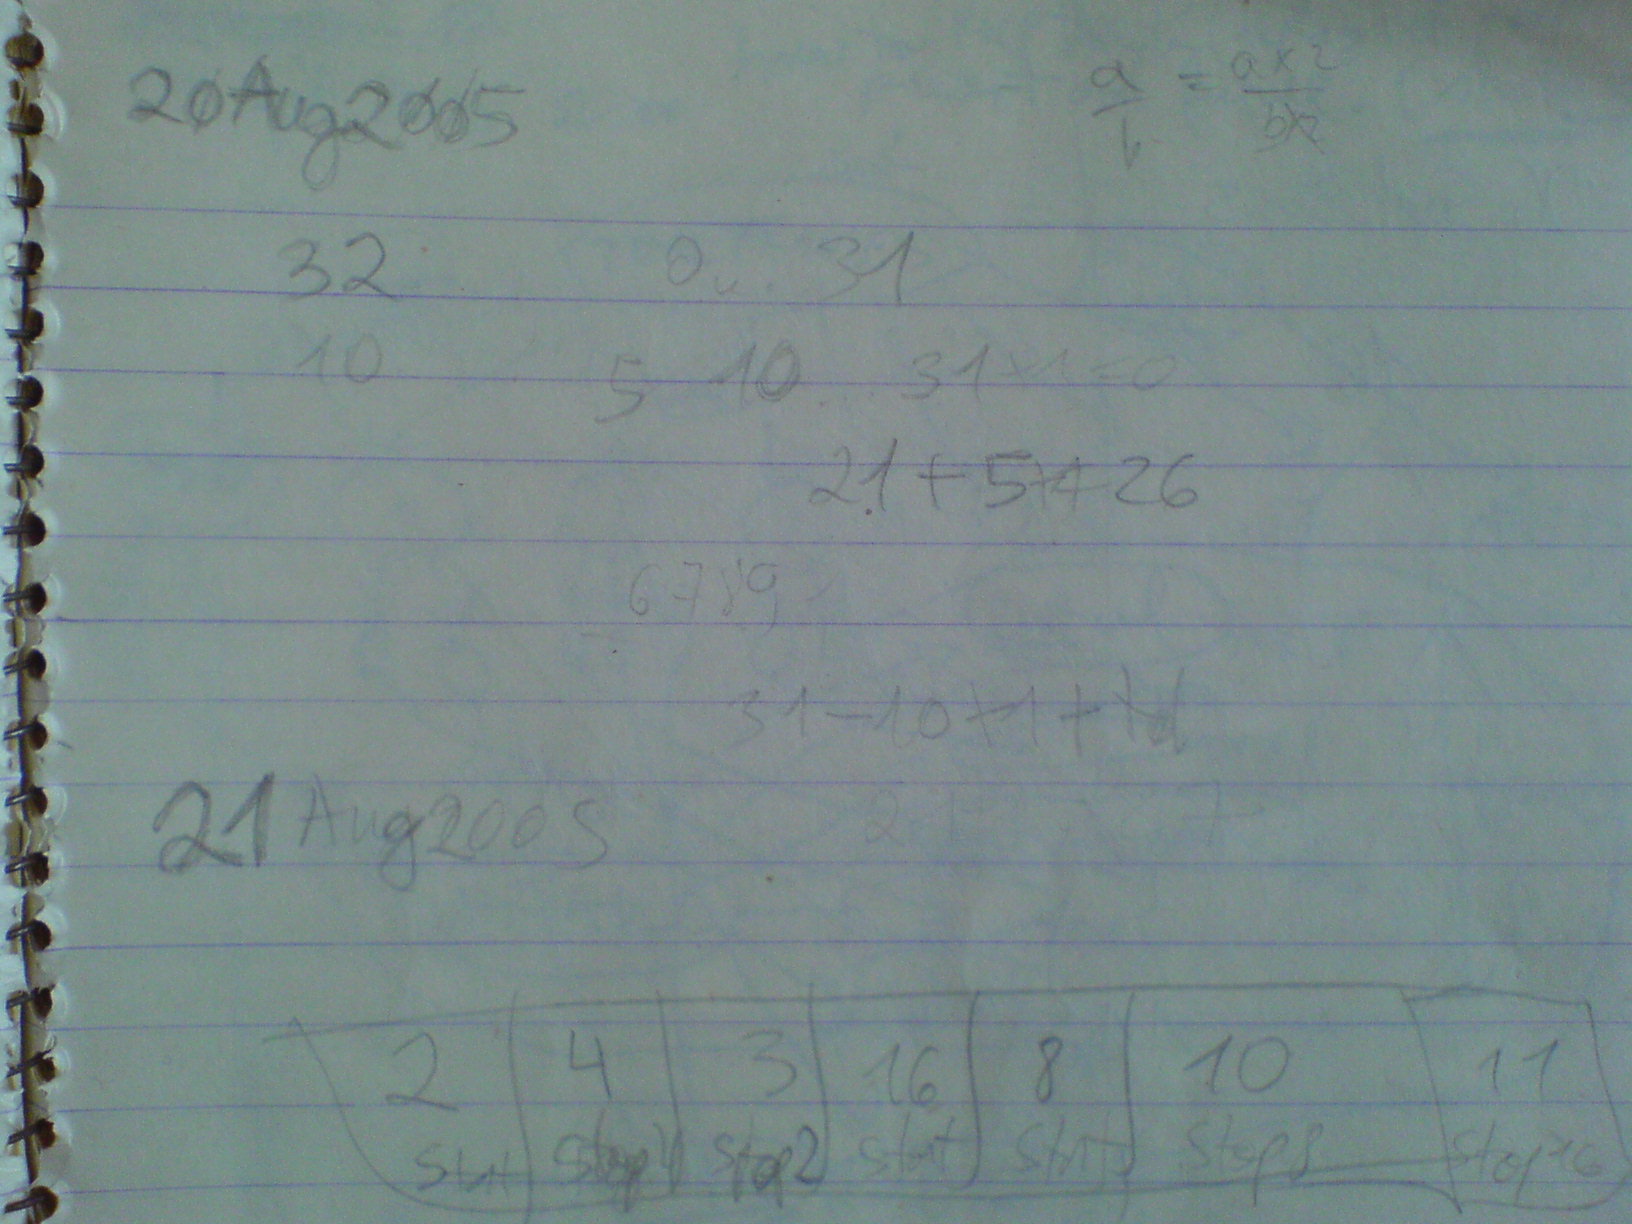 20Aug2005
a/b = ax2/bx2
32 0... 31
10 5 10 ... 31+1=0
21+5 26
6789
31-10+1+
21Aug2005 21 +
2 4 3 16 8 10 11
Start Stop Stop2 Start Start Stop8 Stop16